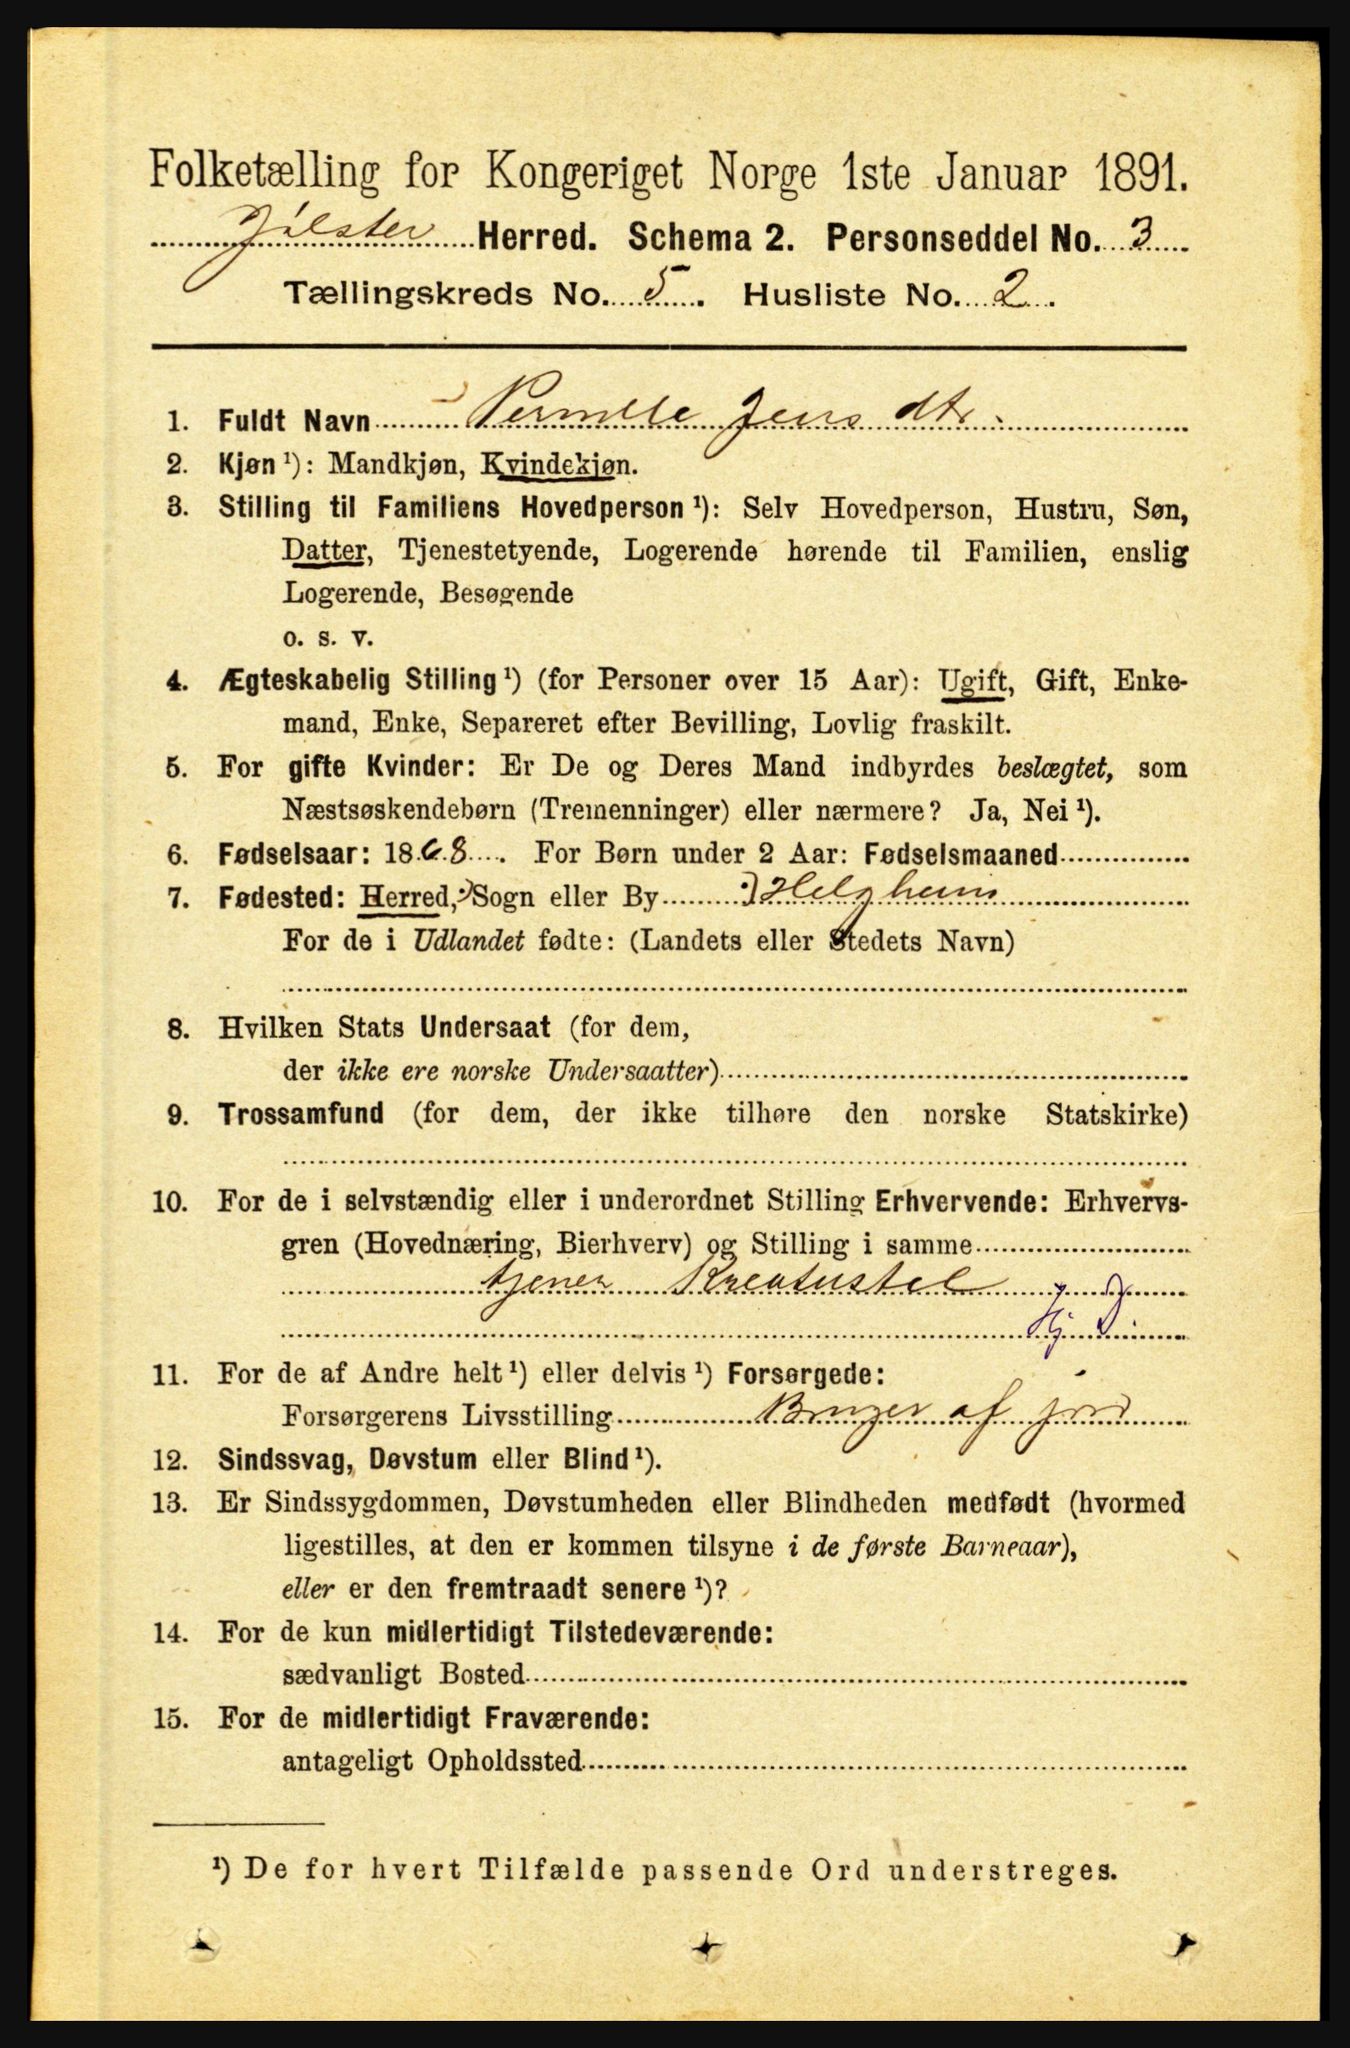 Folketælling for Kongeriget Norge 1ste Januar 1891.
Jølster Herred. Schema 2. Personseddel No. 3
Tællingskreds No. 5. Husliste No. 2.
1. Fuldt Navn Pernille Jens dtr.
2. Kjøn ¹): Mandkjøn, Kvindekjøn.
3. Stilling til Familiens Hovedperson ¹): Selv Hovedperson, Hustru, Søn,
Datter, Tjenestetyende, Logerende hørende til Familien, enslig
Logerende, Besøgende
o. s. v.
4. Ægteskabelig Stilling ¹) (for Personer over 15 Aar): Ugift, Gift, Enke-
mand, Enke, Separeret efter Bevilling, Lovlig fraskilt.
5. For gifte Kvinder: Er De og Deres Mand indbyrdes beslægtet, som
Næstsøskendebørn (Tremenninger) eller nærmere? Ja, Nei ¹).
6. Fødselsaar: 1868. For Børn under 2 Aar: Fødselsmaaned
7. Fødested: Herred, Sogn eller By Helgheim
For de i Udlandet fødte: (Landets eller Stedets Navn)
8. Hvilken Stats Undersaat (for dem,
der ikke ere norske Undersaatter)
9. Trossamfund (for dem, der ikke tilhøre den norske Statskirke)
10. For de i selvstændig eller i underordnet Stilling Erhvervende: Erhvervs-
gren (Hovednæring, Bierhverv) og Stilling i samme
tjener Kreaturstel
Hj D.
11. For de af Andre helt ¹) eller delvis ¹) Forsørgede:
Forsørgerens Livsstilling Bruger af jord
12. Sindssvag, Døvstum eller Blind ¹).
13. Er Sindssygdommen, Døvstumheden eller Blindheden medfødt (hvormed
ligestilles, at den er kommen tilsyne i de første Barneaar),
eller er den fremtraadt senere ¹)?
14. For de kun midlertidigt Tilstedeværende:
sædvanligt Bosted
15. For de midlertidigt Fraværende:
antageligt Opholdssted
¹) De for hvert Tilfælde passende Ord understreges.